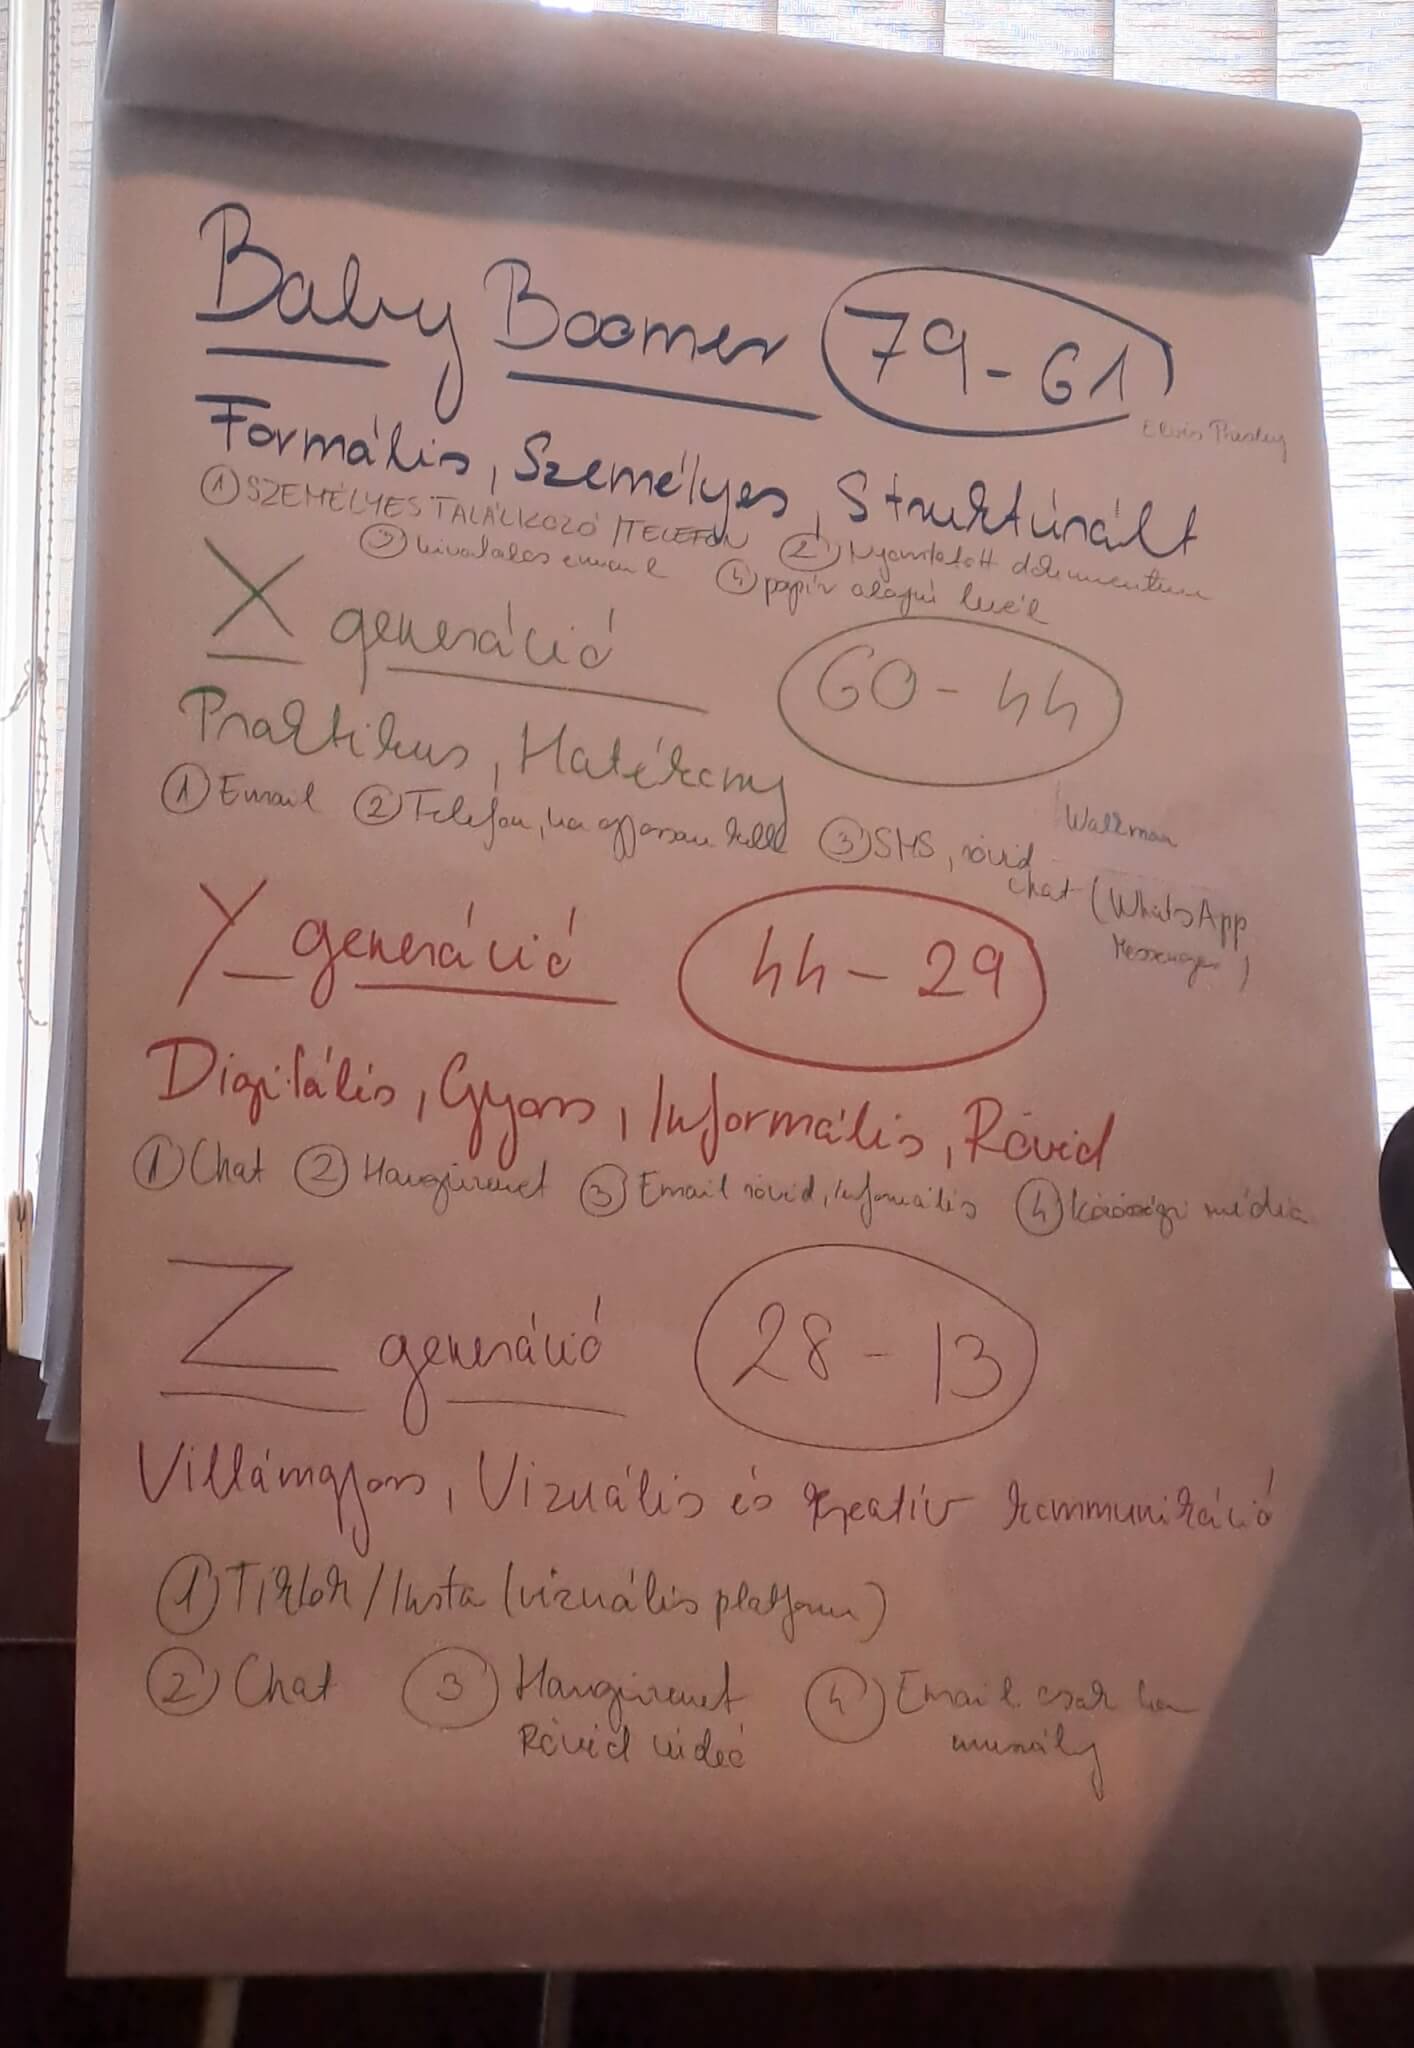 Baby Boomer 79-61
Elvis Presley
Formális, Személyes, Struktúrált
① SZEMÉLYES TALÁLKOZÓ/TELEFON ② Nyomtatott dokumentum
③ hivatalos email ④ papír alapú levél
X generáció 60-44
Praktikus, Hatékony
Walkman
① Email ② Telefon, ha gyorsan kell ③ SMS, rövid
chat (WhatsApp
Messenger)
Y generáció 44-29
Digitális, Gyors, Informális, Rövid
① Chat ② Hangüzenet ③ Email rövid, informális ④ közösségi média
Z generáció 28-13
Villámgyors, Vizuális és kreatív kommunikáció
① Tiktok/Insta (vizuális platform)
② Chat ③ Hangüzenet ④ Email csak ha
Rövid videó muszály